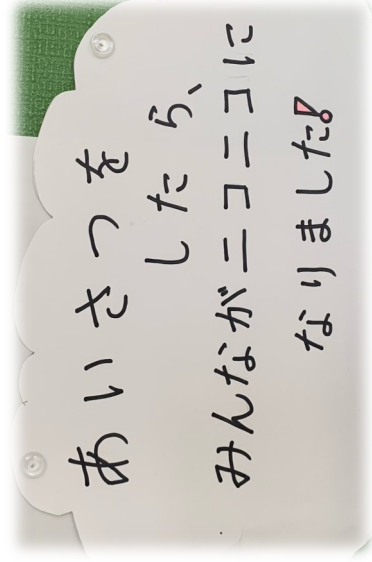 あいさつを
したら、
みんながニコニコに
なりました!